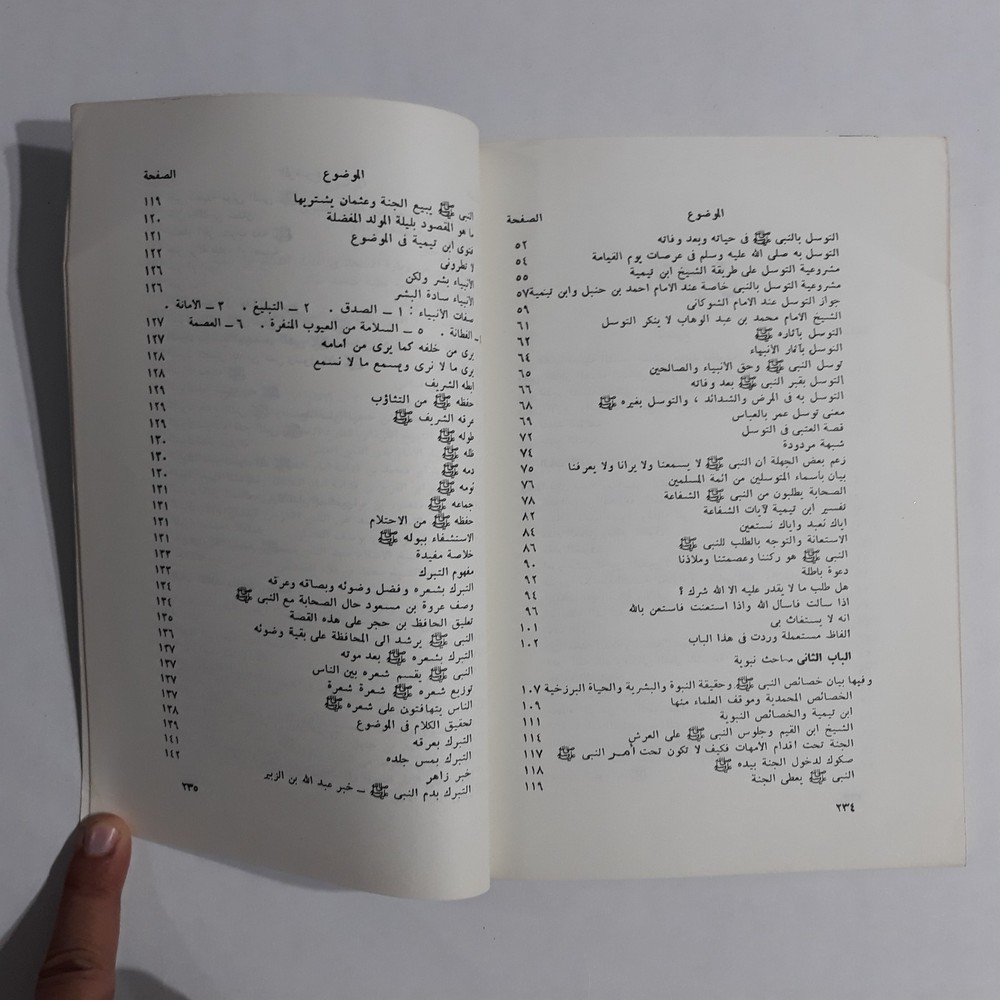 الموضوع الصفحة
التوسل بالنبى ﷺ فى حياته وبعد وفاته ٥٢
التوسل به صلى الله عليه وسلم فى عرصات يوم القيامة ٥٤
مشروعية التوسل على طريقة الشيخ ابن تيمية ٥٥
مشروعية التوسل بالنبى خاصة عند الامام احمد بن حنبل وابن تيمية ٥٧
جواز التوسل عند الامام الشوكانى ٥٩
الشيخ الامام محمد بن عبد الوهاب لا ينكر التوسل ٦١
التوسل بآثاره ﷺ ٦٢
التوسل بآثار الأنبياء ٦٤
توسل النبى ﷺ وحق الأنبياء والصالحين ٦٥
التوسل بقبر النبى ﷺ بعد وفاته ٦٦
التوسل به فى المرض والشدائد ، والتوسل بغيره ﷺ ٦٨
معنى توسل عمر بالعباس ٦٩
قصة العتبى فى التوسل ٧٢
شبهة مردودة ٧٤
زعم بعض الجهلة أن النبى ﷺ لا يسمعنا ولا يرانا ولا يعرفنا ٧٥
بيان بأسماء المتوسلين من أئمة المسلمين ٧٦
الصحابة يطلبون من النبى ﷺ الشفاعة ٧٨
تفسير ابن تيمية لآيات الشفاعة ٨٢
اياك نعبد واياك نستعين ٨٤
الاستعانة والتوجه بالطلب للنبى ﷺ ٨٦
النبى ﷺ هو ركننا وعصمتنا وملاذنا ٩٠
دعوة باطلة ٩٢
هل طلب ما لا يقدر عليه الا الله شرك ؟ ٩٤
اذا سألت فاسأل الله واذا استعنت فاستعن بالله ٩٦
انه لا يستغاث بى ١٠١
الفاظ مستعملة وردت فى هذا الباب ١٠٢
الباب الثانى مباحث نبوية
وفيها بيان خصائص النبى ﷺ وحقيقة النبوة والبشرية والحياة البرزخية ١٠٧
الخصائص المحمدية وموقف العلماء منها ١٠٩
ابن تيمية والخصائص النبوية ١١١
الشيخ ابن القيم وجلوس النبى ﷺ على العرش ١١٤
الجنة تحت اقدام الأمهات فكيف لا تكون تحت أمر النبى ﷺ ١١٧
صكوك لدخول الجنة بيده ﷺ ١١٨
النبى ﷺ يعطى الجنة ١١٩
٢٣٤
الموضوع الصفحة
النبى ﷺ يبيع الجنة وعثمان يشتريها ١١٩
ما هو المقصود بليلة المولد المفضلة ١٢٠
فتوى ابن تيمية فى الموضوع ١٢١
لا تطرونى ١٢٢
الأنبياء بشر ولكن ١٢٦
الأنبياء سادة البشر ١٢٦
صفات الأنبياء : ١ ــ الصدق . ٢ ــ التبليغ . ٣ ــ الأمانة .
ــ الفطانة . ٥ ــ السلامة من العيوب المنفرة . ٦ ــ العصمة ١٢٧
يرى من خلفه كما يرى من أمامه ١٢٧
يرى ما لا نرى ويسمع ما لا نسمع ١٢٨
ابطه الشريف ١٢٨
حفظه ﷺ من التثاؤب ١٢٩
عرقه الشريف ﷺ ١٢٩
طوله ﷺ ١٢٩
ظله ﷺ ١٣٠
دمه ﷺ ١٣٠
نومه ﷺ ١٣٠
جماعه ﷺ ١٣١
حفظه ﷺ من الاحتلام ١٣١
الاستشفاء ببوله ﷺ ١٣١
خلاصة مفيدة ١٣١
مفهوم التبرك ١٣٣
التبرك بشعره وفضل وضوئه وبصاقه وعرقه ١٣٣
وصف عروة بن مسعود حال الصحابة مع النبى ﷺ ١٣٤
تعليق الحافظ بن حجر على هذه القصة ١٣٤
النبى ﷺ يرشد الى المحافظة على بقية وضوئه ١٣٥
التبرك بشعره ﷺ بعد موته ١٣٦
النبى ﷺ يقسم شعره بين الناس ١٣٧
توزيع شعره ﷺ شعرة شعرة ١٣٧
الناس يتهافتون على شعره ﷺ ١٣٧
تحقيق الكلام فى الموضوع ١٣٨
التبرك بعرقه ١٣٩
التبرك بمس جلده ١٤١
خبر زاهر ١٤٢
التبرك بدم النبى ﷺ ــ خبر عبد الله بن الزبير
٢٣٥